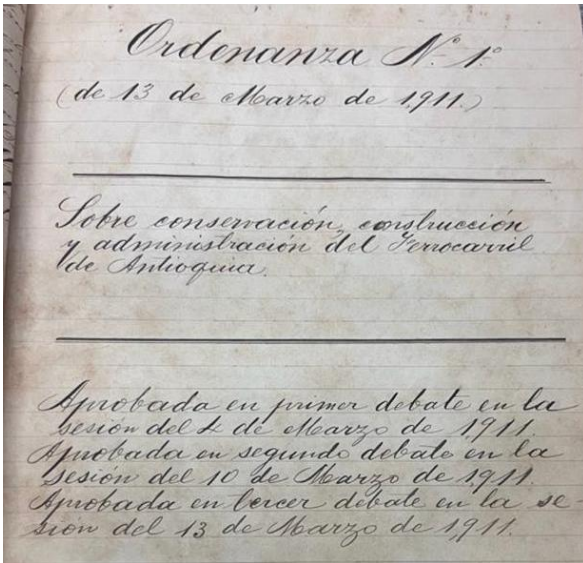 Ordenanza N.° 1.°
(de 13 de Marzo de 1,911.)
Sobre conservación, construcción
y administración del Ferrocarril
de Antioquia.
Aprobada en primer debate en la
sesión del 2 de Marzo de 1,911.
Aprobada en segundo debate en la
sesión del 10 de Marzo de 1,911.
Aprobada en tercer debate en la se
sión del 13 de Marzo de 1,911.